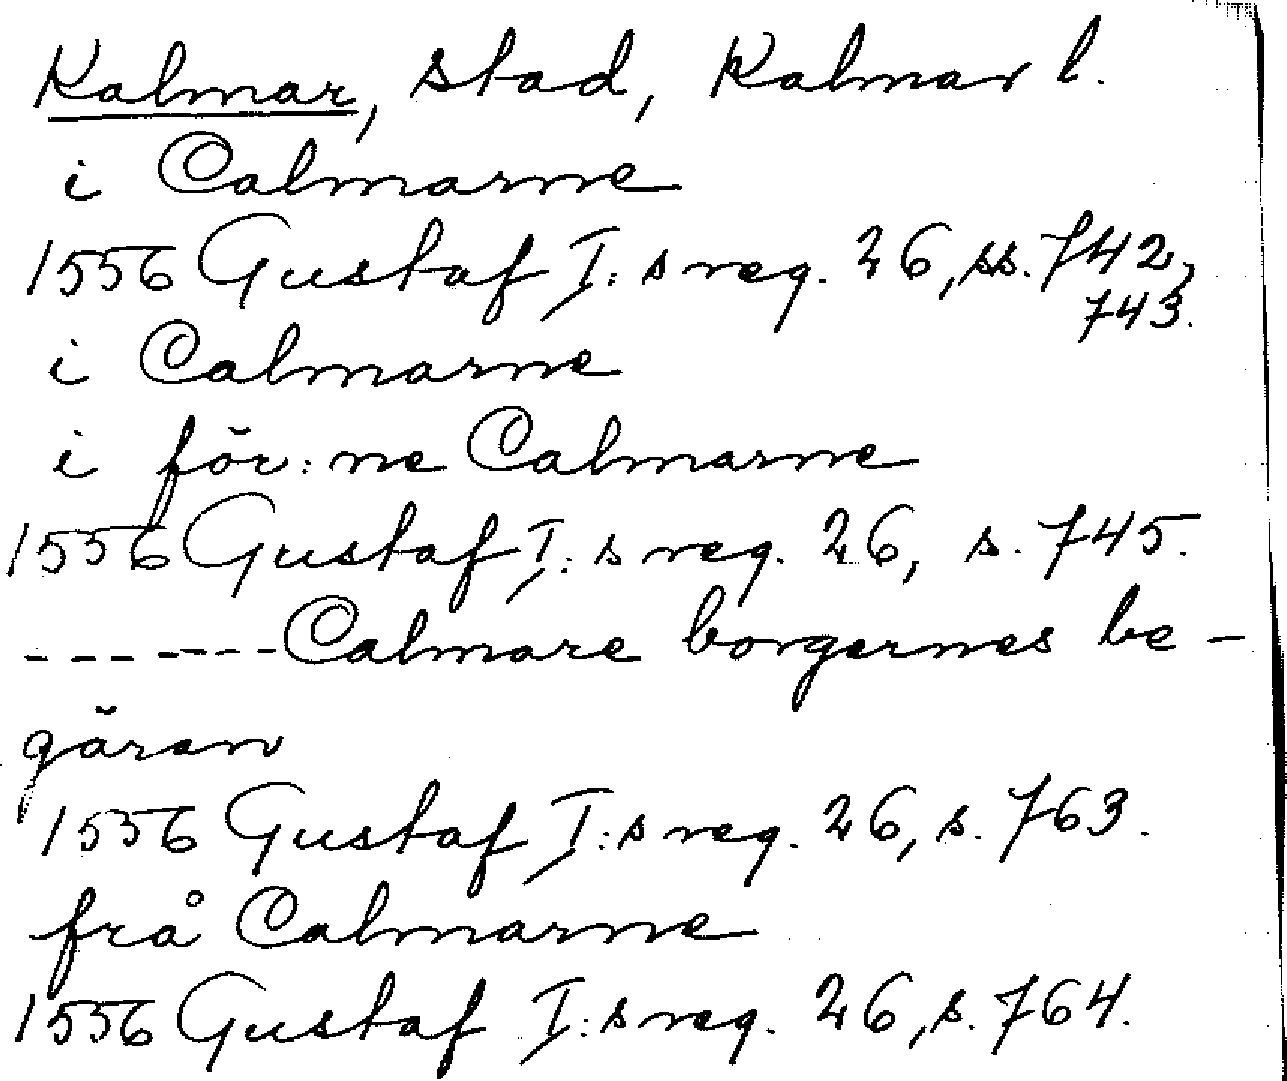 Kalmar, stad, Kalmar l.
i Calmarne
1556 Gustaf I:s reg. 26, ss. 742,
743.
i Calmarne
i för:ne Calmarne
1556 Gustaf I:s reg. 26, s. 745.
------- Calmare borgernes be-
gäran
1556 Gustaf I:s reg. 26, s. 763.
frå Calmarne
1556 Gustaf I:s reg. 26, s. 764.